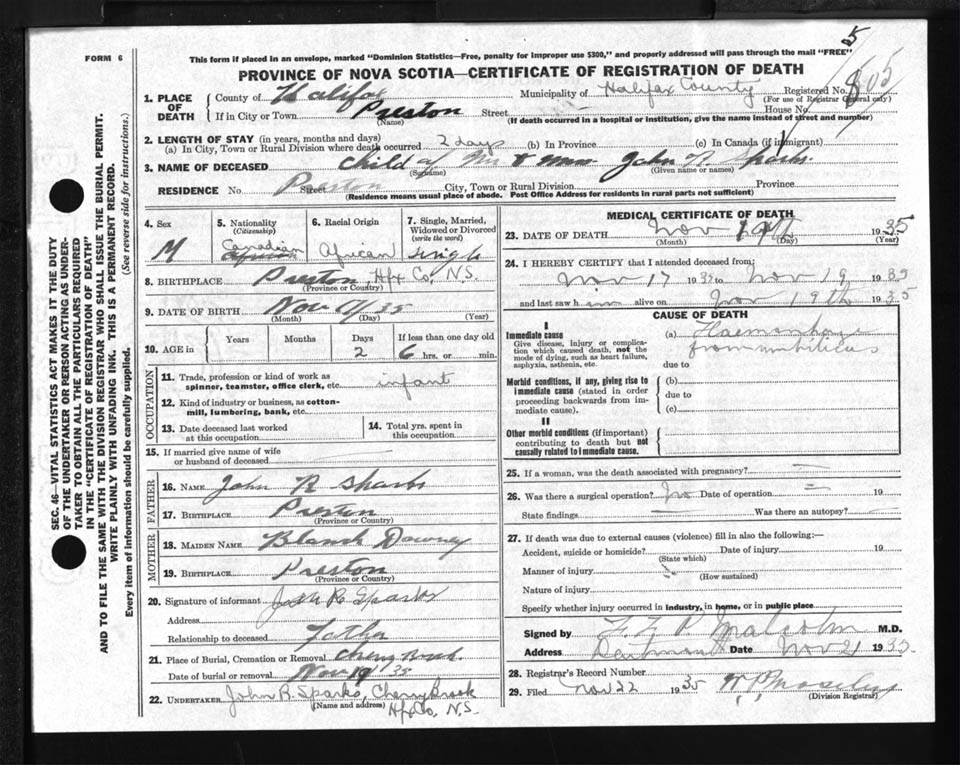 FORM 6
This form if placed in an envelope, marked "Dominion Statistics—Free, penalty for improper use $300," and properly addressed will pass through the mail "FREE"
5
PROVINCE OF NOVA SCOTIA—CERTIFICATE OF REGISTRATION OF DEATH
1. PLACE OF DEATH
County of Halifax Municipality of Halifax County Registered No. 805
(For use of Registrar General only)
If in City or Town Preston Street House No.
(Name) (If death occurred in a hospital or institution, give the name instead of street and number)
2. LENGTH OF STAY (in years, months and days)
(a) In City, Town or Rural Division where death occurred 2 days (b) In Province (c) In Canada (if immigrant)
3. NAME OF DECEASED Child of Mr & Mrs John R Sparks
(Surname) (Given name or names)
RESIDENCE No. Preston Street City, Town or Rural Division Province
(Residence means usual place of abode. Post Office Address for residents in rural parts not sufficient)
4. Sex M
5. Nationality (Citizenship) Canadian African
6. Racial Origin African
7. Single, Married, Widowed or Divorced (write the word) Single
8. BIRTHPLACE Preston, Hfx Co, N.S.
(Province or Country)
9. DATE OF BIRTH Nov 17 35
(Month) (Day) (Year)
10. AGE in Years Months Days 2 If less than one day old 6 hrs. or min.
OCCUPATION
11. Trade, profession or kind of work as spinner, teamster, office clerk, etc. infant
12. Kind of industry or business, as cotton-mill, lumbering, bank, etc.
13. Date deceased last worked at this occupation
14. Total yrs. spent in this occupation
15. If married give name of wife or husband of deceased
FATHER
16. NAME John R Sparks
17. BIRTHPLACE Preston
(Province or Country)
MOTHER
18. MAIDEN NAME Blanch Downey
19. BIRTHPLACE Preston
(Province or Country)
20. Signature of informant John R Sparks
Address
Relationship to deceased Father
21. Place of Burial, Cremation or Removal Cherry Brook
Date of burial or removal Nov 19 35
22. UNDERTAKER John R. Sparks, Cherry Brook
(Name and address) Hfx Co, N.S.
MEDICAL CERTIFICATE OF DEATH
23. DATE OF DEATH Nov 19th 1935
(Month) (Day) (Year)
24. I HEREBY CERTIFY that I attended deceased from:
Nov 17 1935 to Nov 19 1935
and last saw him alive on Nov 19th 1935
CAUSE OF DEATH
I
Immediate cause
Give disease, injury or complication which caused death, not the mode of dying, such as heart failure, asphyxia, asthenia, etc.
(a) Haemorrhage
from umbilicus
due to
Morbid conditions, if any, giving rise to immediate cause (stated in order proceeding backwards from immediate cause).
(b)
due to
(c)
II
Other morbid conditions (if important) contributing to death but not causally related to immediate cause.
25. If a woman, was the death associated with pregnancy?
26. Was there a surgical operation? No Date of operation 19
State findings Was there an autopsy?
27. If death was due to external causes (violence) fill in also the following:—
Accident, suicide or homicide? Date of injury 19
(State which)
Manner of injury
(How sustained)
Nature of injury
Specify whether injury occurred in industry, in home, or in public place
Signed by Malcolm M.D.
Address Dartmouth Date Nov 21 1935
28. Registrar's Record Number
29. Filed Nov 22 1935
(Division Registrar)
SEC. 46—VITAL STATISTICS ACT MAKES IT THE DUTY
OF THE UNDERTAKER OR PERSON ACTING AS UNDER-
TAKER TO OBTAIN ALL THE PARTICULARS REQUIRED
IN THE "CERTIFICATE OF REGISTRATION OF DEATH"
AND TO FILE THE SAME WITH THE DIVISION REGISTRAR WHO SHALL ISSUE THE BURIAL PERMIT.
WRITE PLAINLY WITH UNFADING INK. THIS IS A PERMANENT RECORD.
Every item of information should be carefully supplied. (See reverse side for instructions.)